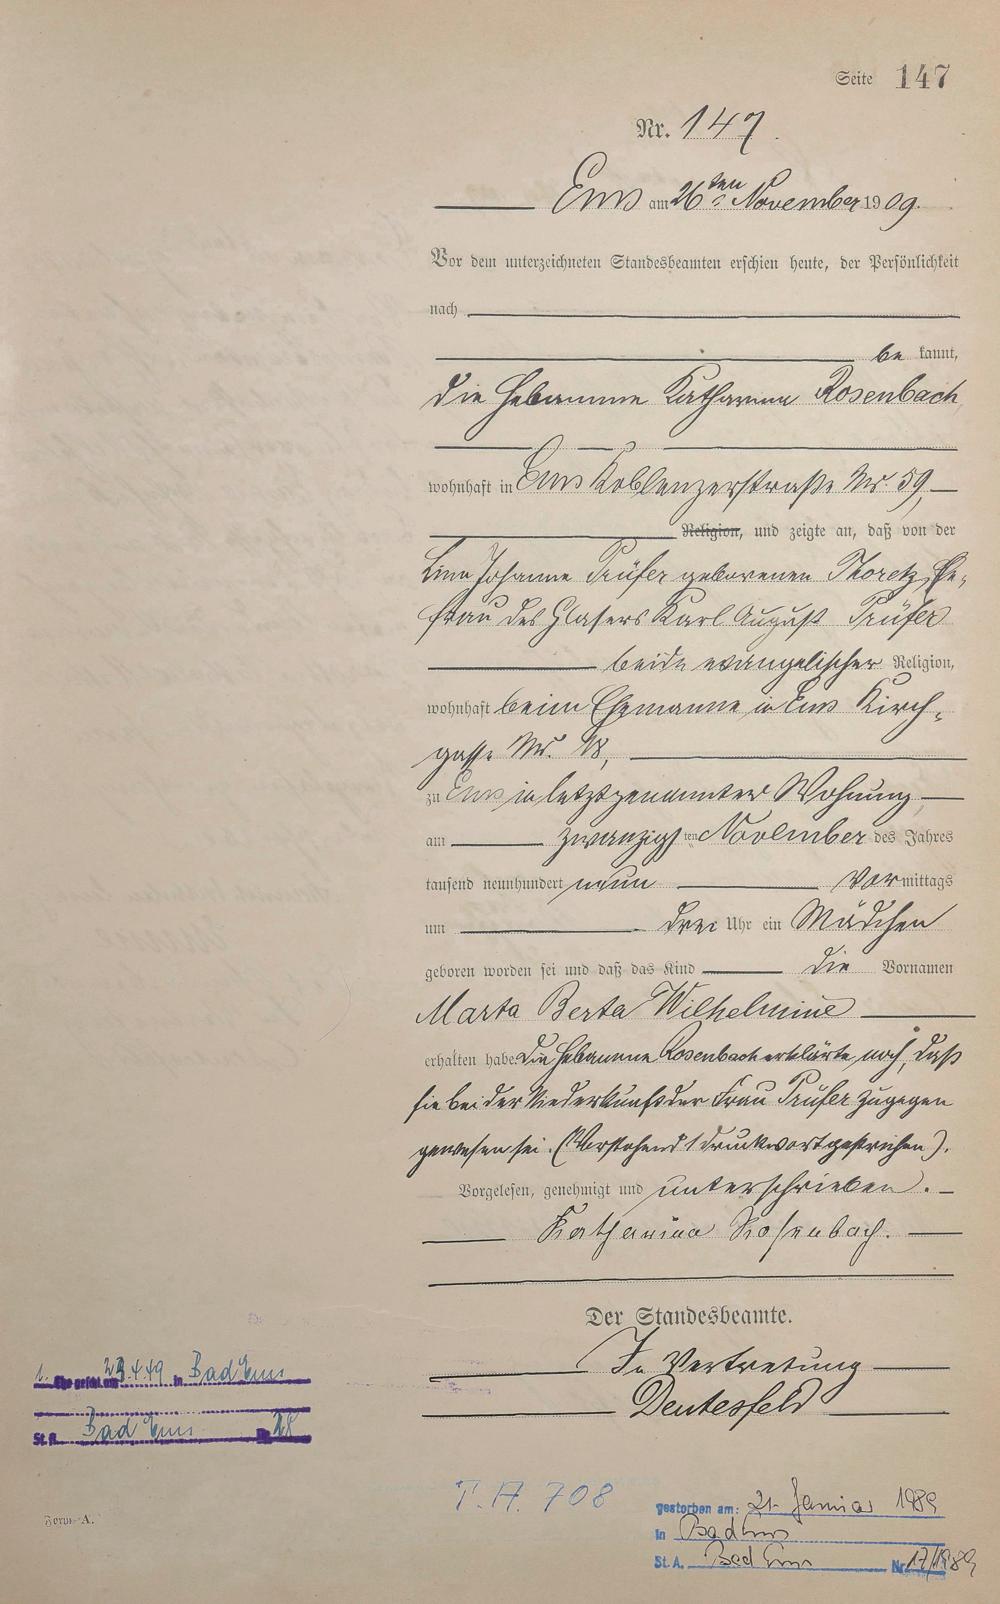 Seite 147
Nr. 147.
Ems am 26ten November 1909.
Vor dem unterzeichneten Standesbeamten erschien heute, der Persönlichkeit
nach
be kannt,
die Hebamme Katharina Rosenbach
wohnhaft in Ems Koblenzerstraße Nr. 59,
Religion, und zeigte an, daß von der
Lina Johanna Prüfer geborenen Thoretz, Ehe-
frau des Glasers Karl August Prüfer
beide evangelischer Religion,
wohnhaft beim Ehemanne in Ems Kirch-
gasse Nr. 18,
zu Ems in letztgenannter Wohnung
am zwanzigsten November des Jahres
tausend neunhundert neun Vormittags
um drei Uhr ein Mädchen
geboren worden sei und daß das Kind die Vornamen
Marta Berta Wilhelmine
erhalten habe. Die Hebamme Rosenbach erklärte noch, daß
sie bei der Niederkunft der Frau Prüfer zugegen
gewesen sei. (Vorstehend 1 Druckwort gestrichen).
Vorgelesen, genehmigt und unterschrieben.
Katharina Rosenbach.
Der Standesbeamte.
In Vertretung
Deutesfeld
1. Ehe geschl. am 23.4.49 in Bad Ems
St. A. Bad Ems Nr. 28
T. A. 708
Form A.
gestorben am: 21. Januar 1989
in Bad Ems
St. A. Bad Ems Nr. 17/1989